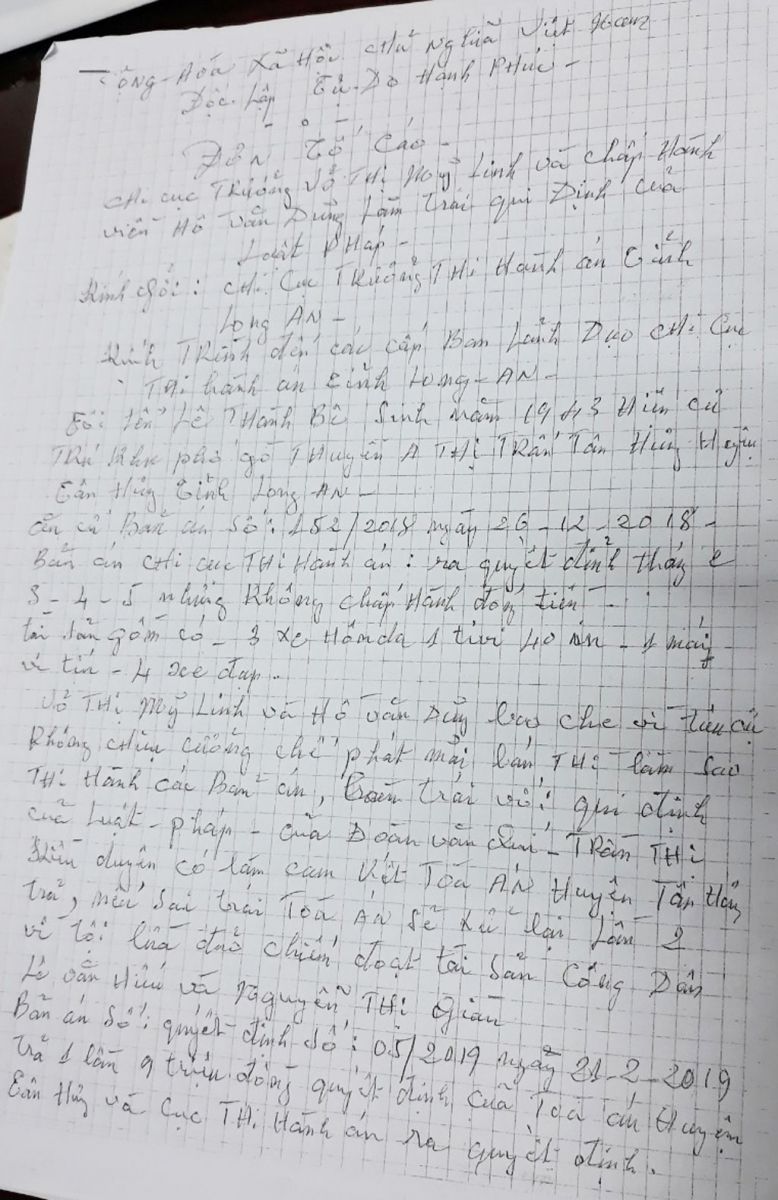 Cộng-Hòa Xã Hội chủ Nghĩa Việt Nam
Độc-Lập Tự-Do Hạnh PHúc-
ĐƠN TỐ CÁO-
CHi cục TRưởng Võ THị Mỹ Linh và chấp Hành
viên Hồ Văn Dũng Làm Trái qui Định của
Luật PHáp-
Kính Gởi: CHi Cục TRưởng THi Hành án Tỉnh
Long AN-
Kính TRình đến các cấp Ban Lảnh Đạo CHi Cục
THi hành án Tỉnh Long-AN-
Tôi tên Lê THành Bê Sinh năm 1943 Hiện cư
TRú Khu phố gò THuyền A THị TRấn Tân Hưng Huyện
Tân Hưng Tỉnh Long AN-
căn cứ Bản án Số: 152/2018 ngày 26-12-2018-
Bản án CHi cục THi Hành án: ra quyết định tháng 2
3-4-5 nhưng Không chấp Hành đóng tiền-
tài sản gồm có- 3 xe Honda 1 tivi 40 in- 1 máy
vi tín- 4 xe đạp.
Võ THị Mỹ Linh và Hồ Văn Dũng bao che vì
Không chịu cưỡng chế phát mải bán THì làm sao
THi Hành các Bản án, trái với qui định
của Luật-pháp- của Đoàn Văn TRần THị
Kiều duyên có làm cam Kết Toà ÁN Huyện Tân Hưng
trả, nếu sai trái Toà ÁN sẽ xử lại Lần 2
về tội lừa đảo chiếm đoạt tài sản Công Dân
Lê văn Hiếu và Nguyễn THị Giàu
Bản án số: quyết định số: 05/2019 ngày 21-2-2019
trả 1 lần 9 triệu đồng quyết định của Toà án Huyện
Tân Hưng và Cục THi Hành án ra quyết định.